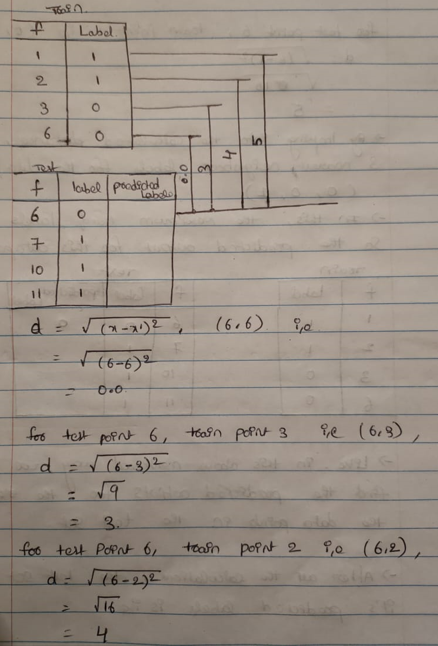 Train.
f Label
1 1
2 1
3 0
6 0
0.0 3 4 5
Test
f label predicted labels
6 0
7 1
10 1
11 1
d = √(x-x')² , (6,6) i,e
= √(6-6)²
= 0.0
for test point 6, train point 3 i,e (6,3),
d = √(6-3)²
= √9
= 3.
for test point 6, train point 2 i,e (6,2),
d = √(6-2)²
= √16
= 4